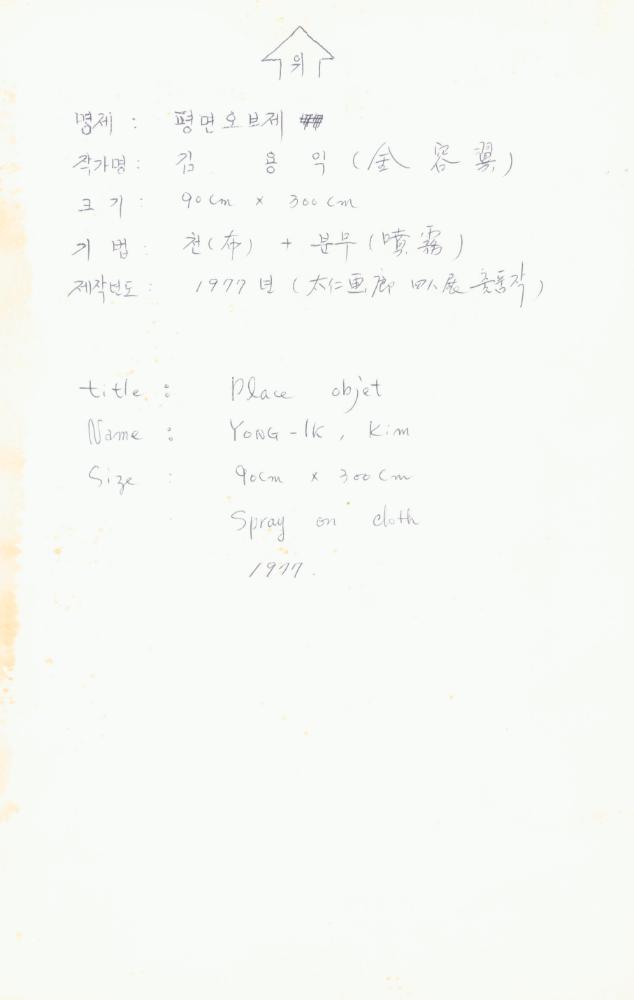 위
명제 : 평면오브제
작가명 : 김 용 익 (金 容 翼)
크 기 : 90cm × 300cm
기 법 : 천(布) + 분무 (噴霧)
제작년도 : 1977 년 (太仁画廊 四人展 출품작)
title : Place objet
Name : YONG-IK, Kim
Size : 90cm × 300cm
Spray on cloth
1977.